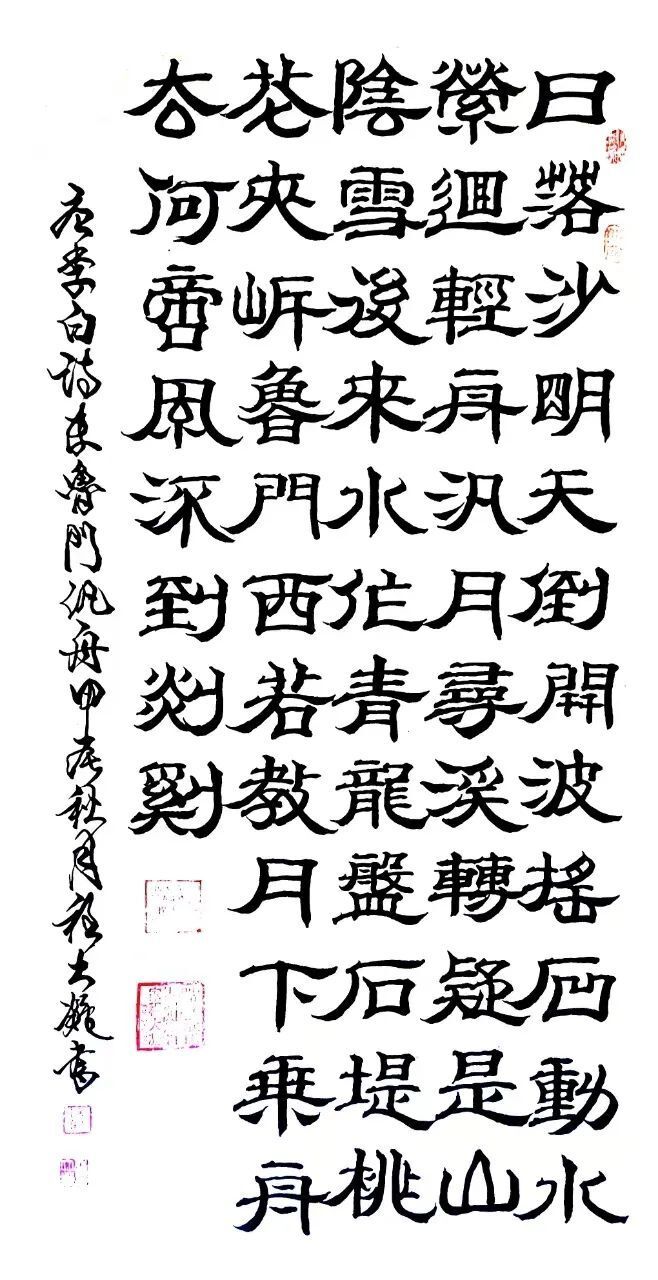 日落沙明天倒開波搖石動水
縈迴輕舟汎月尋溪轉疑是山
陰雪後來水作青龍盤石堤桃
花夾岸魯門西若教月下乘舟
去何啻風流到剡
唐李白詩東魯門汎舟甲辰秋月大書